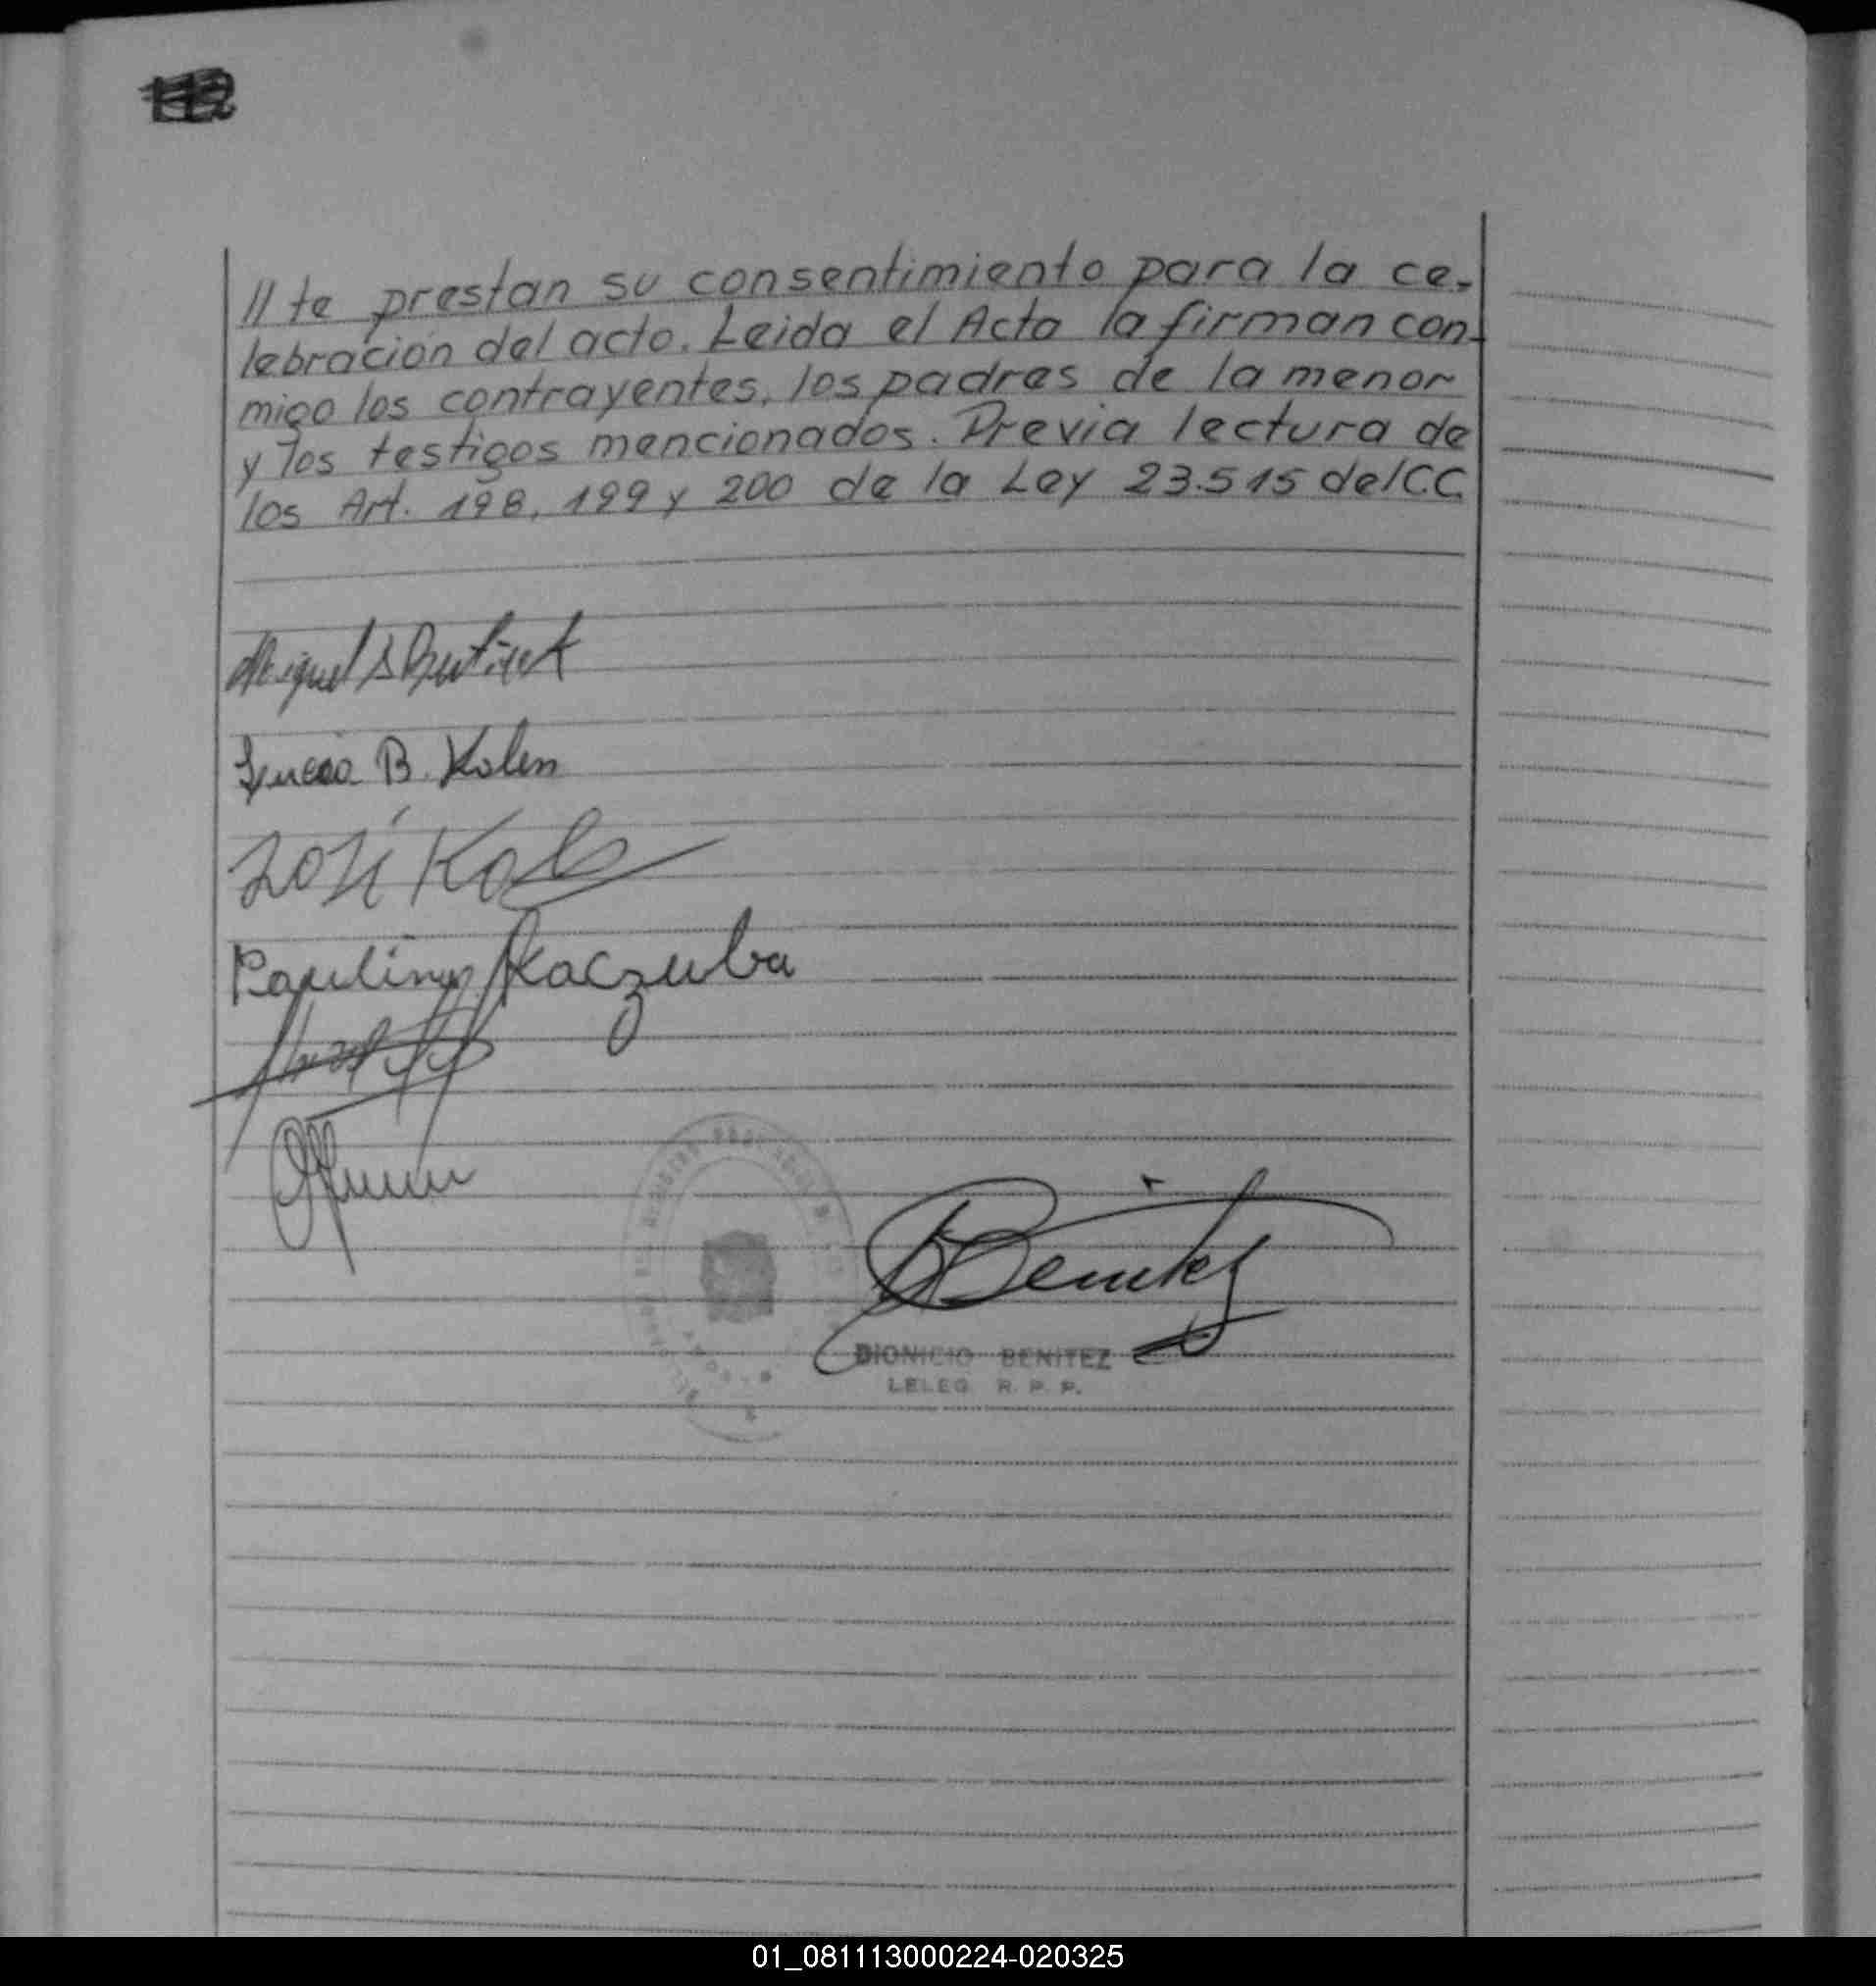 // te prestan su consentimiento para la ce-
lebración del acto. Leida el Acta la firman con-
migo los contrayentes, los padres de la menor
y los testigos mencionados. Previa lectura de
los Art. 198, 199 y 200 de la Ley 23.515 del C.C.
Miguel
B. Kolen
José
Paulina Kaczuba
Benitez
DIONICIO BENITEZ
LELEG R. P. P.
01_081113000224-020325